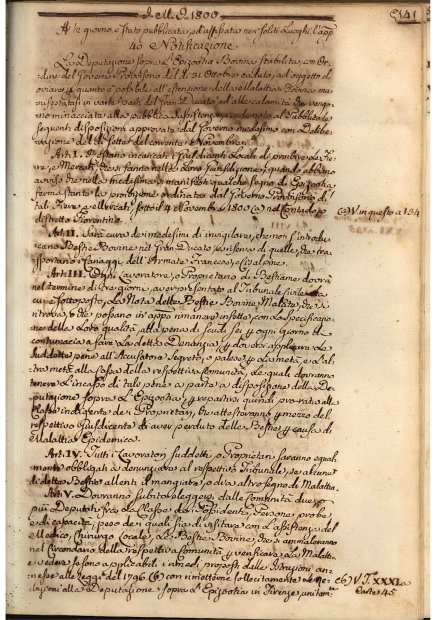 1800
141
Notificazione
La Deputazione sopra l'Epizootia Bovina stabilita con Or-
dine del Governo Provvisorio del dì 31 Ottobre caduto, ad oggetto di
ovviare quanto è possibile all'estensione della Mallattia Bovina mani-
festatasi in varie parti del Gran Ducato, ed alle calamità che vengo-
no minacciate alla pubblica sussistenza, rende noto al Pubblico le
seguenti disposizioni approvate dal Governo medesimo con Delibe-
razione del dì sette del corrente Novembre.
Art. I. Restano incaricati i Giusdicenti Locali di proibire le Fie-
re, e Mercati, che si fanno nelle loro Giurisdizioni, quando abbiano
avviso che nelle medesime si manifesti qualche segno di Epizootia
ferma stante la proibizione ordinata dal Governo Provvisorio di
tali Fiere, e Mercati, sotto il 4 Novembre 1800 (a) nel Contado, e
distretto Fiorentino.
(a) V. in questo a 134
Art. II. Sarà cura de' medesimi di invigilare, che non s'intro-
ducano Bestie Bovine nel Gran Ducato, a riserva di quelle, che tra-
sportano i Bagagli dell'Armate Francese, e Cisalpine.
Art. III. Ogni Lavoratore, o Proprietario di Bestiame dovrà
nel termine di tre giorni, aver presentato al Tribunale, a
cui è sottoposto, la Nota delle Bestie Bovine Malate, che si
ritrova, e che possano in appo rimanere infette, con la Specificazio-
ne della loro qualità, alla pena di scudi sei ogni giorno di
contumacia a fare la detta Denunzia, dovrà applicare le
suddette pene all'Accusatore segreto, o palese metà, e l'al-
tra metà alla Cassa della respettiva Comunità, le quali dovranno
tenere l'incasso di tale pene a parte a disposizione della De-
putazione sopra l'Epizootia, repartirsi quindi pro-rata alla
Classe indigente de' Proprietari, che attesteranno mezzo del
respettivo Giusdicente di aver perduto delle Bestie causa di
Mallattia Epidemica.
Art. IV. Tutti i Lavoratori suddetti, o Proprietari saranno egual-
mente obbligati a denunziare al respettivo Tribunale, se alcune
di dette Bestie allenti il mangiare, o dia altro segno di Malattia.
Art. V. Dovranno subito eleggere dalle Comunità due, o
più Deputati fra la Classe de' Possidenti, Persone probe,
e di capacità, peso de' quali sia di visitare con l'assistenza del
Medico, Chirurgo Locale, le Bestie Bovine, che si ammaleranno
nel Circondario della respettiva Comunità verificare la Malattia,
e vedere se sono applicabili i rimedi proposti dalle Istruzioni an-
nesse alle Leggi del 1796 (b) con rimettere sollecitamente le re-
lazioni alla Deputazione sopra l'Epizootia in Firenze, unitamte
(b) V. T. XXXI
Carte 45